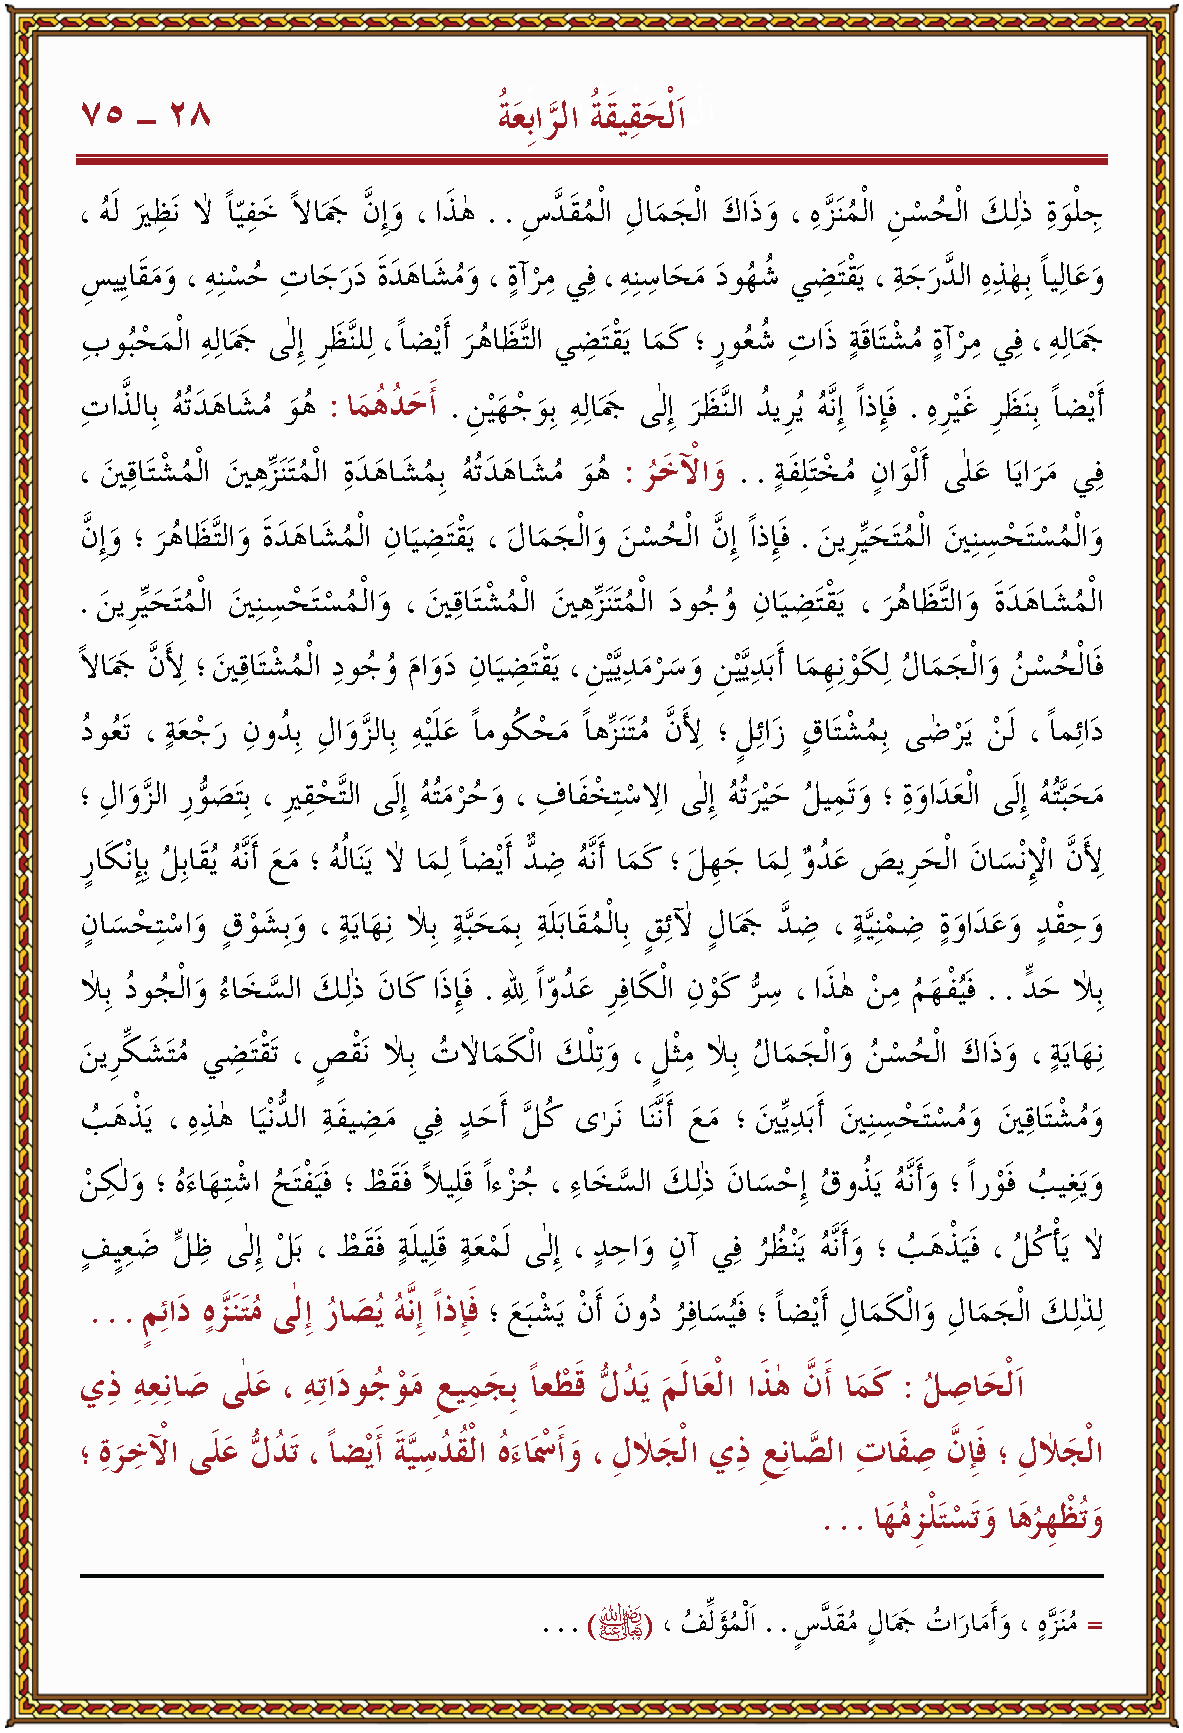 اَلْحَقِيقَةُ الرَّابِعَةُ ٢٨ ـ ٧٥
جِلْوَةِ ذٰلِكَ الْحُسْنِ الْمُنَزَّهِ ، وَذَاكَ الْجَمَالِ الْمُقَدَّسِ . . هٰذَا ، وَإِنَّ جَمَالاً خَفِيّاً لاٰ نَظِيرَ لَهُ ،
وَعَالِياً بِهٰذِهِ الدَّرَجَةِ ، يَقْتَضِي شُهُودَ مَحَاسِنِهِ ، فِي مِرْآةٍ ، وَمُشَاهَدَةَ دَرَجَاتِ حُسْنِهِ ، وَمَقَايِيسِ
جَمَالِهِ ، فِي مِرْآةٍ مُشْتَاقَةٍ ذَاتِ شُعُورٍ ؛ كَمَا يَقْتَضِي التَّظَاهُرَ أَيْضاً ، لِلنَّظَرِ إِلٰى جَمَالِهِ الْمَحْبُوبِ
أَيْضاً بِنَظَرِ غَيْرِهِ . فَإِذاً إِنَّهُ يُرِيدُ النَّظَرَ إِلٰى جَمَالِهِ بِوَجْهَيْنِ . أَحَدُهُمَا : هُوَ مُشَاهَدَتُهُ بِالذَّاتِ
فِي مَرَايَا عَلٰى أَلْوَانٍ مُخْتَلِفَةٍ . . وَالْآخَرُ : هُوَ مُشَاهَدَتُهُ بِمُشَاهَدَةِ الْمُتَنَزِّهِينَ الْمُشْتَاقِينَ ،
وَالْمُسْتَحْسِنِينَ الْمُتَحَيِّرِينَ . فَإِذاً إِنَّ الْحُسْنَ وَالْجَمَالَ ، يَقْتَضِيَانِ الْمُشَاهَدَةَ وَالتَّظَاهُرَ ؛ وَإِنَّ
الْمُشَاهَدَةَ وَالتَّظَاهُرَ ، يَقْتَضِيَانِ وُجُودَ الْمُتَنَزِّهِينَ الْمُشْتَاقِينَ ، وَالْمُسْتَحْسِنِينَ الْمُتَحَيِّرِينَ .
فَالْحُسْنُ وَالْجَمَالُ لِكَوْنِهِمَا أَبَدِيَّيْنِ وَسَرْمَدِيَّيْنِ ، يَقْتَضِيَانِ دَوَامَ وُجُودِ الْمُشْتَاقِينَ ؛ لِأَنَّ جَمَالاً
دَائِماً ، لَنْ يَرْضٰى بِمُشْتَاقٍ زَائِلٍ ؛ لِأَنَّ مُتَنَزِّهاً مَحْكُوماً عَلَيْهِ بِالزَّوَالِ بِدُونِ رَجْعَةٍ ، تَعُودُ
مَحَبَّتُهُ إِلَى الْعَدَاوَةِ ؛ وَتَمِيلُ حَيْرَتُهُ إِلٰى الِاسْتِخْفَافِ ، وَحُرْمَتُهُ إِلَى التَّحْقِيرِ ، بِتَصَوُّرِ الزَّوَالِ ؛
لِأَنَّ الْإِنْسَانَ الْحَرِيصَ عَدُوٌّ لِمَا جَهِلَ ؛ كَمَا أَنَّهُ ضِدٌّ أَيْضاً لِمَا لاٰ يَنَالُهُ ؛ مَعَ أَنَّهُ يُقَابِلُ بِإِنْكَارٍ
وَحِقْدٍ وَعَدَاوَةٍ ضِمْنِيَّةٍ ، ضِدَّ جَمَالٍ لاٰئِقٍ بِالْمُقَابَلَةِ بِمَحَبَّةٍ بِلاٰ نِهَايَةٍ ، وَبِشَوْقٍ وَاسْتِحْسَانٍ
بِلاٰ حَدٍّ . . فَيُفْهَمُ مِنْ هٰذَا ، سِرُّ كَوْنِ الْكَافِرِ عُدُوّاً لِلّٰهِ . فَإِذَا كَانَ ذٰلِكَ السَّخَاءُ وَالْجُودُ بِلاٰ
نِهَايَةٍ ، وَذَاكَ الْحُسْنُ وَالْجَمَالُ بِلاٰ مِثْلٍ ، وَتِلْكَ الْكَمَالاٰتُ بِلاٰ نَقْصٍ ، تَقْتَضِي مُتَشَكِّرِينَ
وَمُشْتَاقِينَ وَمُسْتَحْسِنِينَ أَبَدِيِّينَ ؛ مَعَ أَنَّنَا نَرٰى كُلَّ أَحَدٍ فِي مَضِيفَةِ الدُّنْيَا هٰذِهِ ، يَذْهَبُ
وَيَغِيبُ فَوْراً ؛ وَأَنَّهُ يَذُوقُ إِحْسَانَ ذٰلِكَ السَّخَاءِ ، جُزْءاً قَلِيلاً فَقَطْ ؛ فَيَفْتَحُ اشْتِهَاءَهُ ؛ وَلٰكِنْ
لاٰ يَأْكُلُ ، فَيَذْهَبُ ؛ وَأَنَّهُ يَنْظُرُ فِي آنٍ وَاحِدٍ ، إِلٰى لَمْعَةٍ قَلِيلَةٍ فَقَطْ ، بَلْ إِلٰى ظِلٍّ ضَعِيفٍ
لِذٰلِكَ الْجَمَالِ وَالْكَمَالِ أَيْضاً ؛ فَيُسَافِرُ دُونَ أَنْ يَشْبَعَ ؛ فَإِذاً إِنَّهُ يُصَارُ إِلٰى مُتَنَزَّهٍ دَائِمٍ . . .
اَلْحَاصِلُ : كَمَا أَنَّ هٰذَا الْعَالَمَ يَدُلُّ قَطْعاً بِجَمِيعِ مَوْجُودَاتِهِ ، عَلٰى صَانِعِهِ ذِي
الْجَلاٰلِ ؛ فَإِنَّ صِفَاتِ الصَّانِعِ ذِي الْجَلاٰلِ ، وَأَسْمَاءَهُ الْقُدُسِيَّةَ أَيْضاً ، تَدُلُّ عَلَى الْآخِرَةِ ؛
وَتُظْهِرُهَا وَتَسْتَلْزِمُهَا . . .
= مُنَزَّهٍ ، وَأَمَارَاتُ جَمَالٍ مُقَدَّسٍ . . اَلْمُؤَلِّفُ ، (رَضِيَ اللّٰهُ تَعَالٰى عَنْهُ) . . .